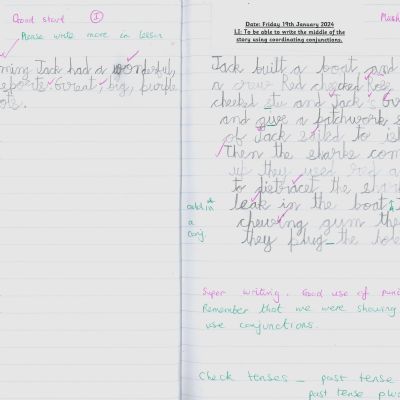 Good start I
Please write more in lesson
ning Jack had a wonderful,
great, big, purple
Date: Friday 19th January 2024
LI: To be able to write the middle of the
story using coordinating conjunctions.
Jack built a boat and
a crew Red cheeked
cheeked and Jack's
and a patchwork s
of Jack sailed to
Then the sharks com
up they used
to the
leak in the boat
add in
a
conj.
chewing gum the
they plug the hole
Super writing. Good use of punc
Remember that we were showing
use conjunctions.
Check tenses - past tense
past tense plu